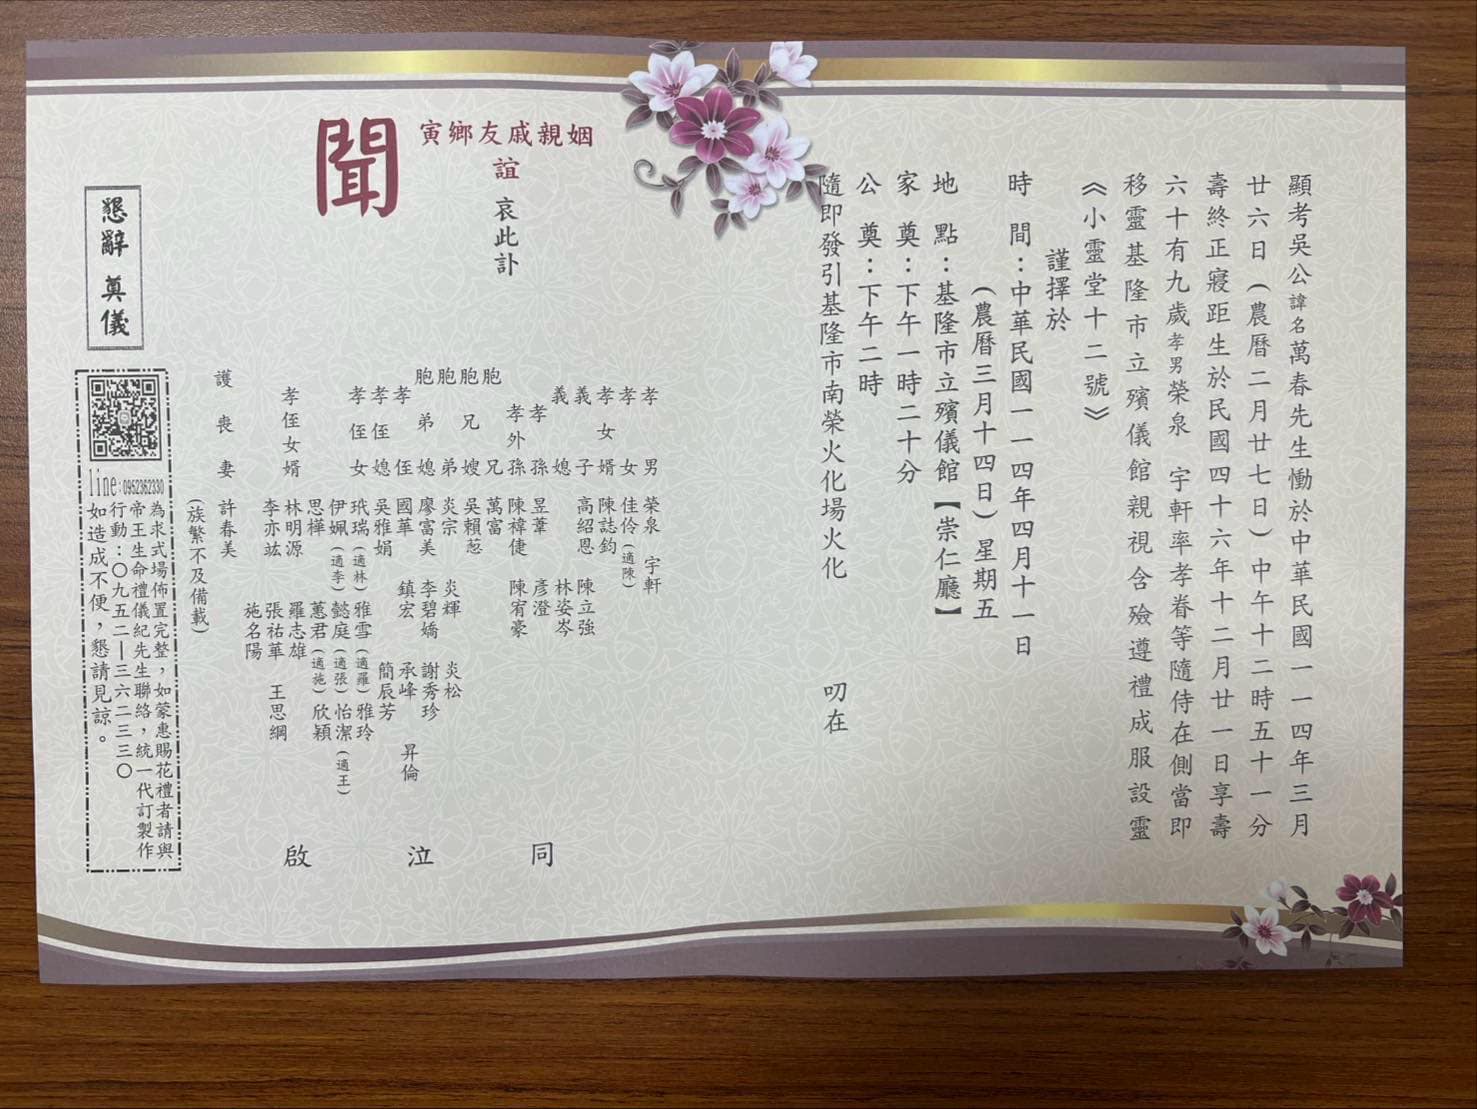 顯考吳公諱名萬春先生慟於中華民國一一四年三月
廿六日(農曆二月廿七日)中午十二時五十一分
壽終正寢距生於民國四十六年十二月廿一日享壽
六十有九歲孝男榮泉 宇軒率孝眷等隨侍在側當即
移靈基隆市立殯儀館親視含殮遵禮成服設靈
《小靈堂十二號》
謹擇於
時 間:中華民國一一四年四月十一日
(農曆三月十四日)星期五
地 點:基隆市立殯儀館【崇仁廳】
家 奠:下午一時二十分
公 奠:下午二時
隨即發引基隆市南榮火化場火化 叨在
寅鄉友戚親姻
誼 哀此訃
聞
孝男 榮泉 宇軒
孝女 佳伶(適陳)
孝女婿 陳誌鈞
義子 高紹恩 陳立強
義媳 林姿岑
孝孫 昱葦 彥澄
孝外孫 陳禕倢 陳宥豪
胞兄 萬富
胞兄嫂 吳賴蒽
胞弟 炎宗 炎輝 炎松
胞弟媳 廖富美 李碧嬌 謝秀珍
孝侄 國華 鎮宏 承峰 昇倫
孝侄媳 吳雅娟 簡辰芳
孝侄女 玳瑞(適林) 雅雪(適羅) 雅玲
伊姵(適李) 懿庭(適張) 怡潔(適王)
思樺 蕙君(適施) 欣穎
孝侄女婿 林明源 羅志雄
李亦竑 張祐華 王思綱
施名陽
護喪妻 許春美
(族繁不及備載)
同 泣 啟
懇辭 奠儀
line:0952362330
為求式場佈置完整,如蒙惠賜花禮者請與
帝王生命禮儀紀先生聯絡,統一代訂製作
行動:〇九五二—三六二三三〇
如造成不便,懇請見諒。